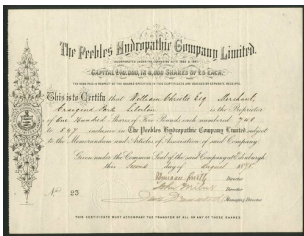 The Peebles Hydropathic Company Limited.
INCORPORATED UNDER THE COMPANIES ACTS 1862 &
CAPITAL £40,000, IN 8,000 SHARES OF £5 EACH.
This is to Certify that William Christie Esq Merchant,
Park Liberton is the Proprietor
of One Hundred Shares of Five Pounds each numbered 740
to inclusive in The Peebles Hydropathic Company Limited subject
to the Memorandum and Articles of Association of said Company
Given under the Common Seal of the said Company at Edinburgh
this Second day of August 18
Duncan Smith Director
John Director
Managing Director
No 23
THIS CERTIFICATE MUST ACCOMPANY THE TRANSFER OF ALL OR ANY OF THESE SHARES